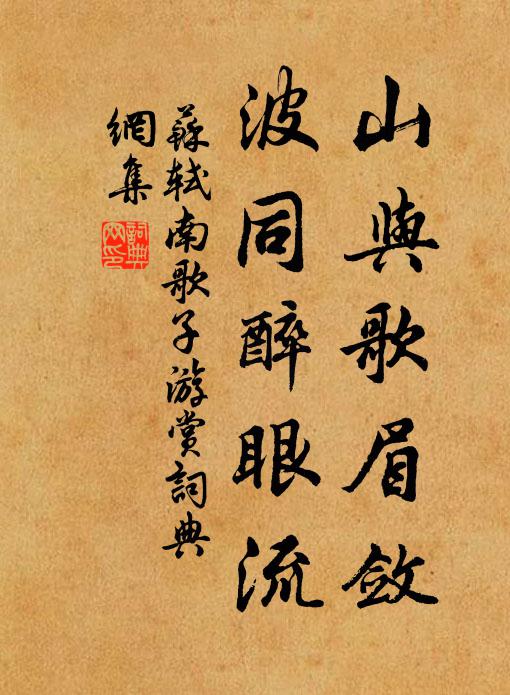 山與歌眉斂
波同醉眼流
蘇軾南歌子游賞詞典
網集
詞典
網印